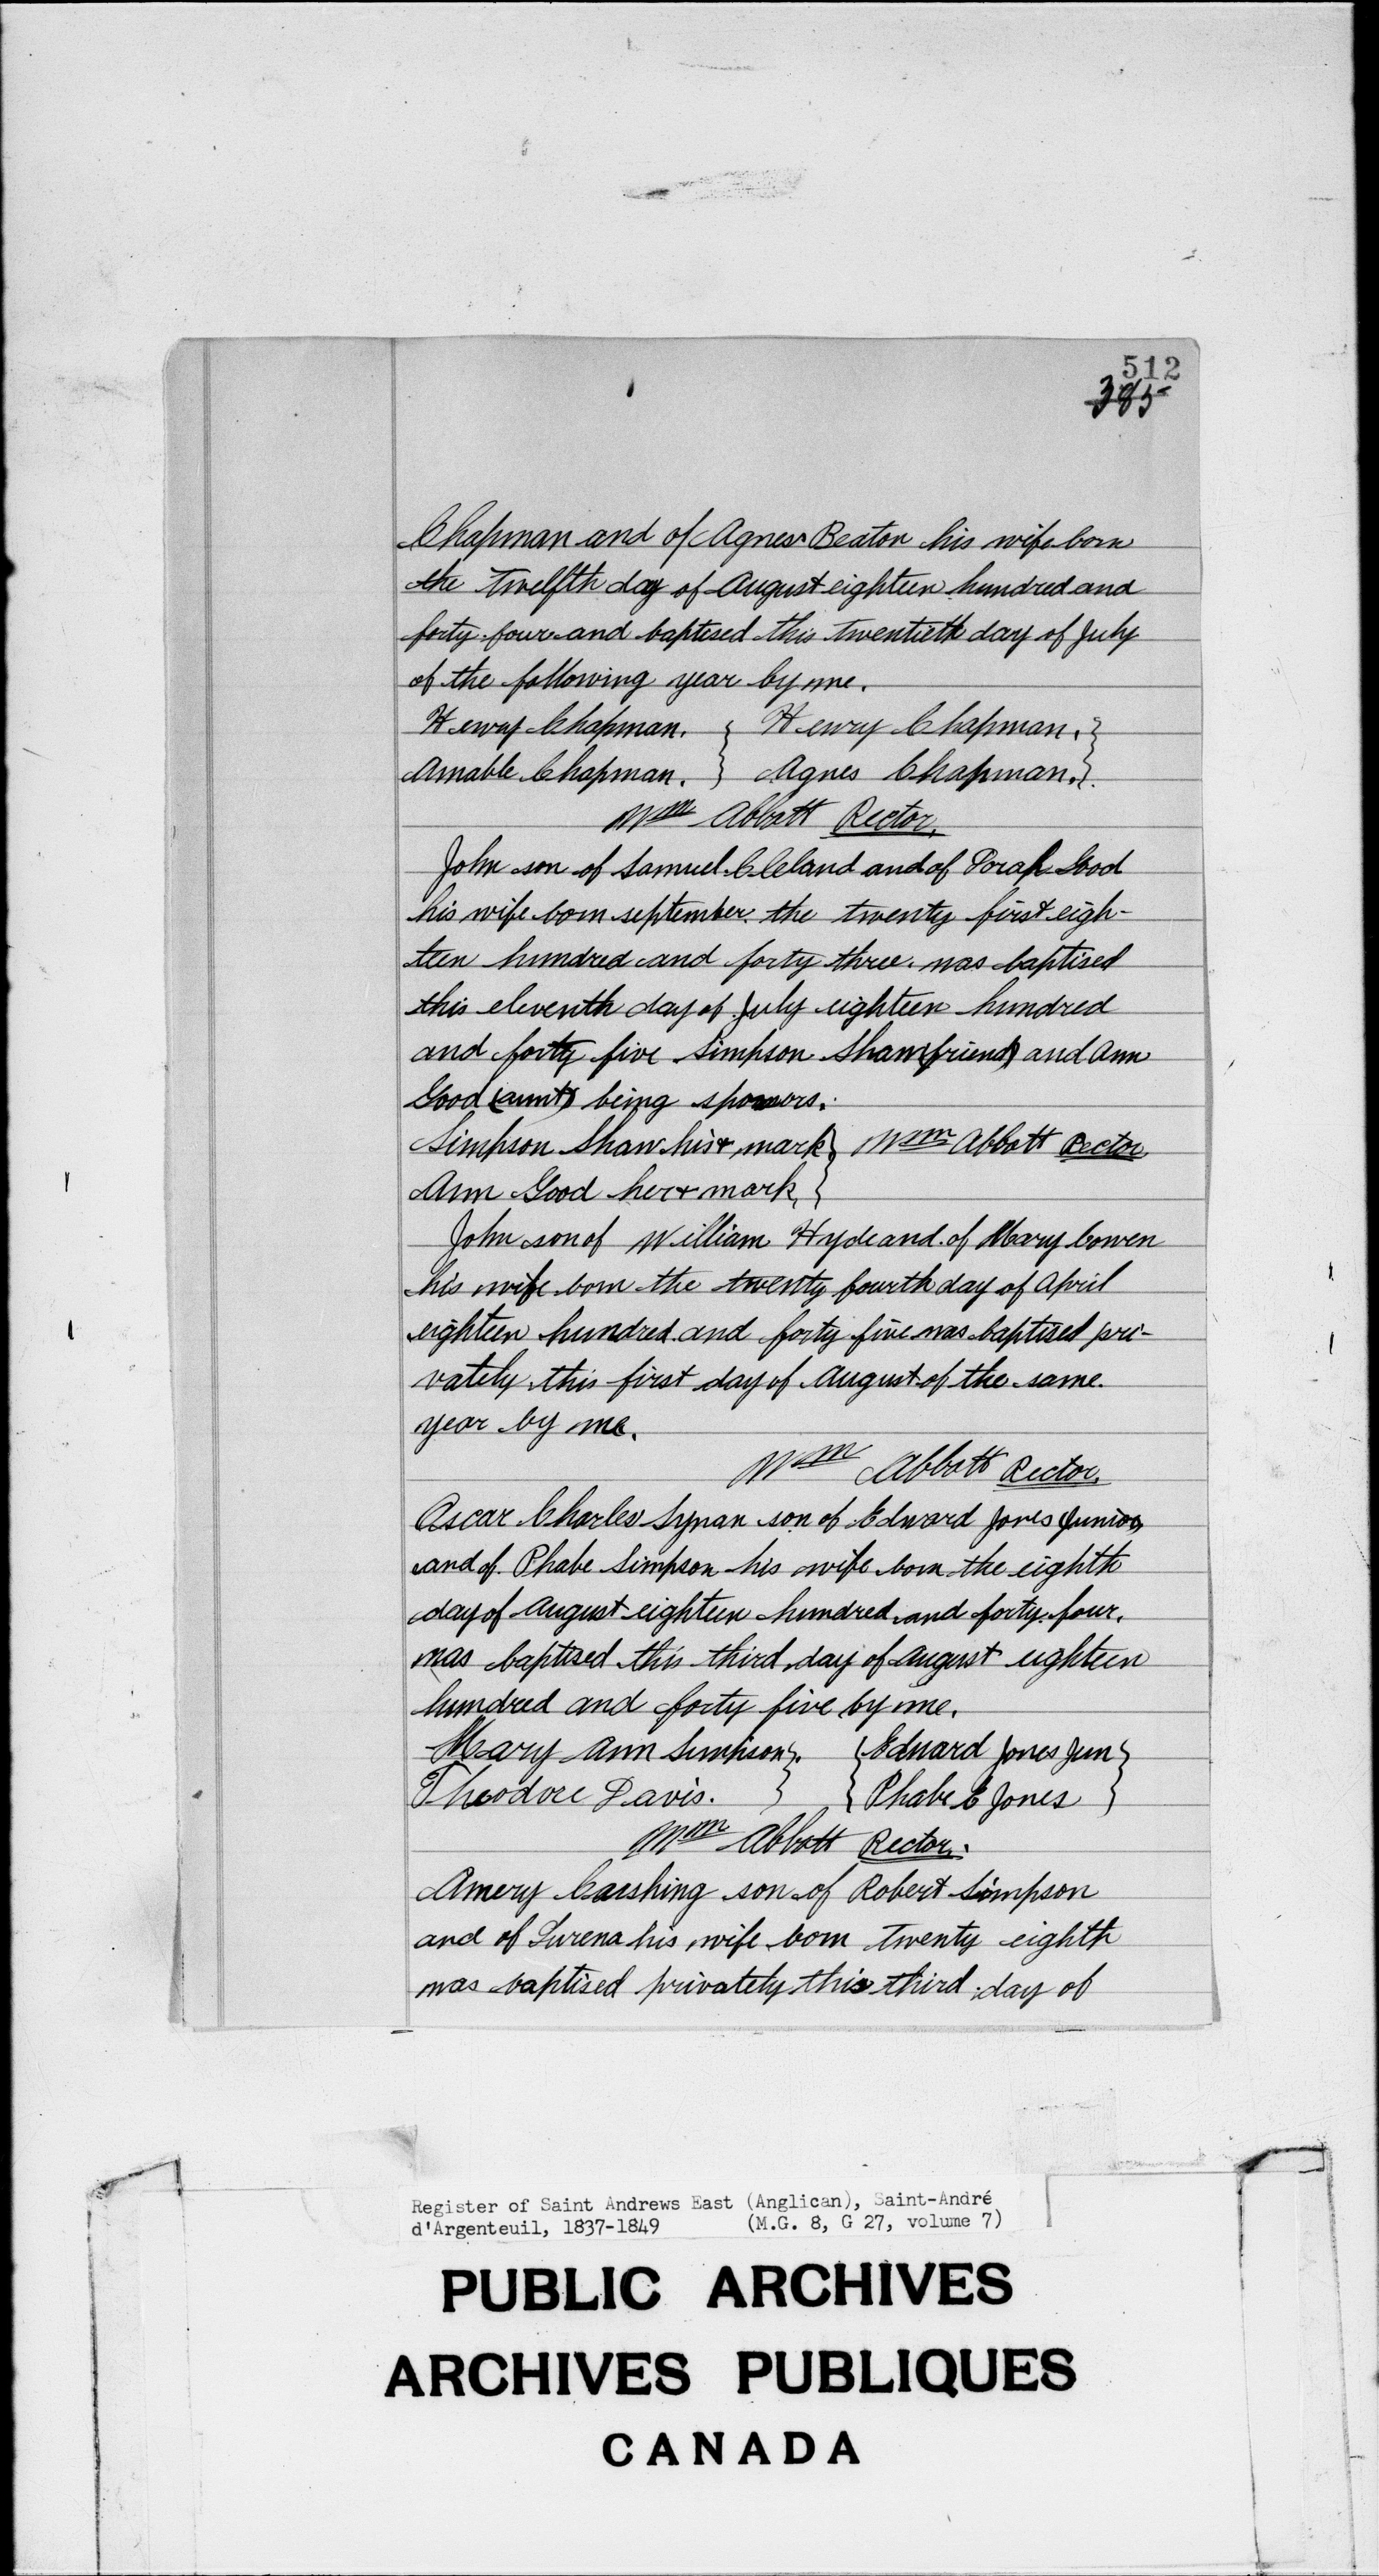 512
385
Chapman and of Agnes Beaton his wife born
the Twelfth day of August eighteen hundred and
forty four and baptised this twentieth day of July
of the following year by me.
Henry Chapman. } Henry Chapman. }
Amable Chapman. } Agnes Chapman. }
Wm Abbott Rector.
John son of Samuel Cleland and of Dorah Good
his wife born september the twenty first eigh-
teen hundred and forty three was baptised
this eleventh day of July eighteen hundred
and forty five Simpson Shaw (friend) and Ann
Good (aunt) being sponsors.
Simpson Shaw his + mark } Wm Abbott Rector
Ann Good her + mark }
John son of William Hyde and of Mary Cowen
his wife born the twenty fourth day of April
eighteen hundred and forty five was baptised pri-
vately this first day of August of the same
year by me.
Wm Abbott Rector.
Oscar Charles Lyman son of Edward Jones (Junior)
and of Phabe Simpson his wife born the eighth
day of August eighteen hundred and forty four.
was baptised this third day of August eighteen
hundred and forty five by me.
Mary Ann Simpson } { Edward Jones Jun }
Theodore Davis. } { Phabe E Jones }
Wm Abbott Rector.
Amery Carshing son of Robert Simpson
and of Lurena his wife born twenty eighth
was baptised privately this third day of
Register of Saint Andrews East (Anglican), Saint-André
d'Argenteuil, 1837-1849 (M.G. 8, G 27, volume 7)
PUBLIC ARCHIVES
ARCHIVES PUBLIQUES
CANADA